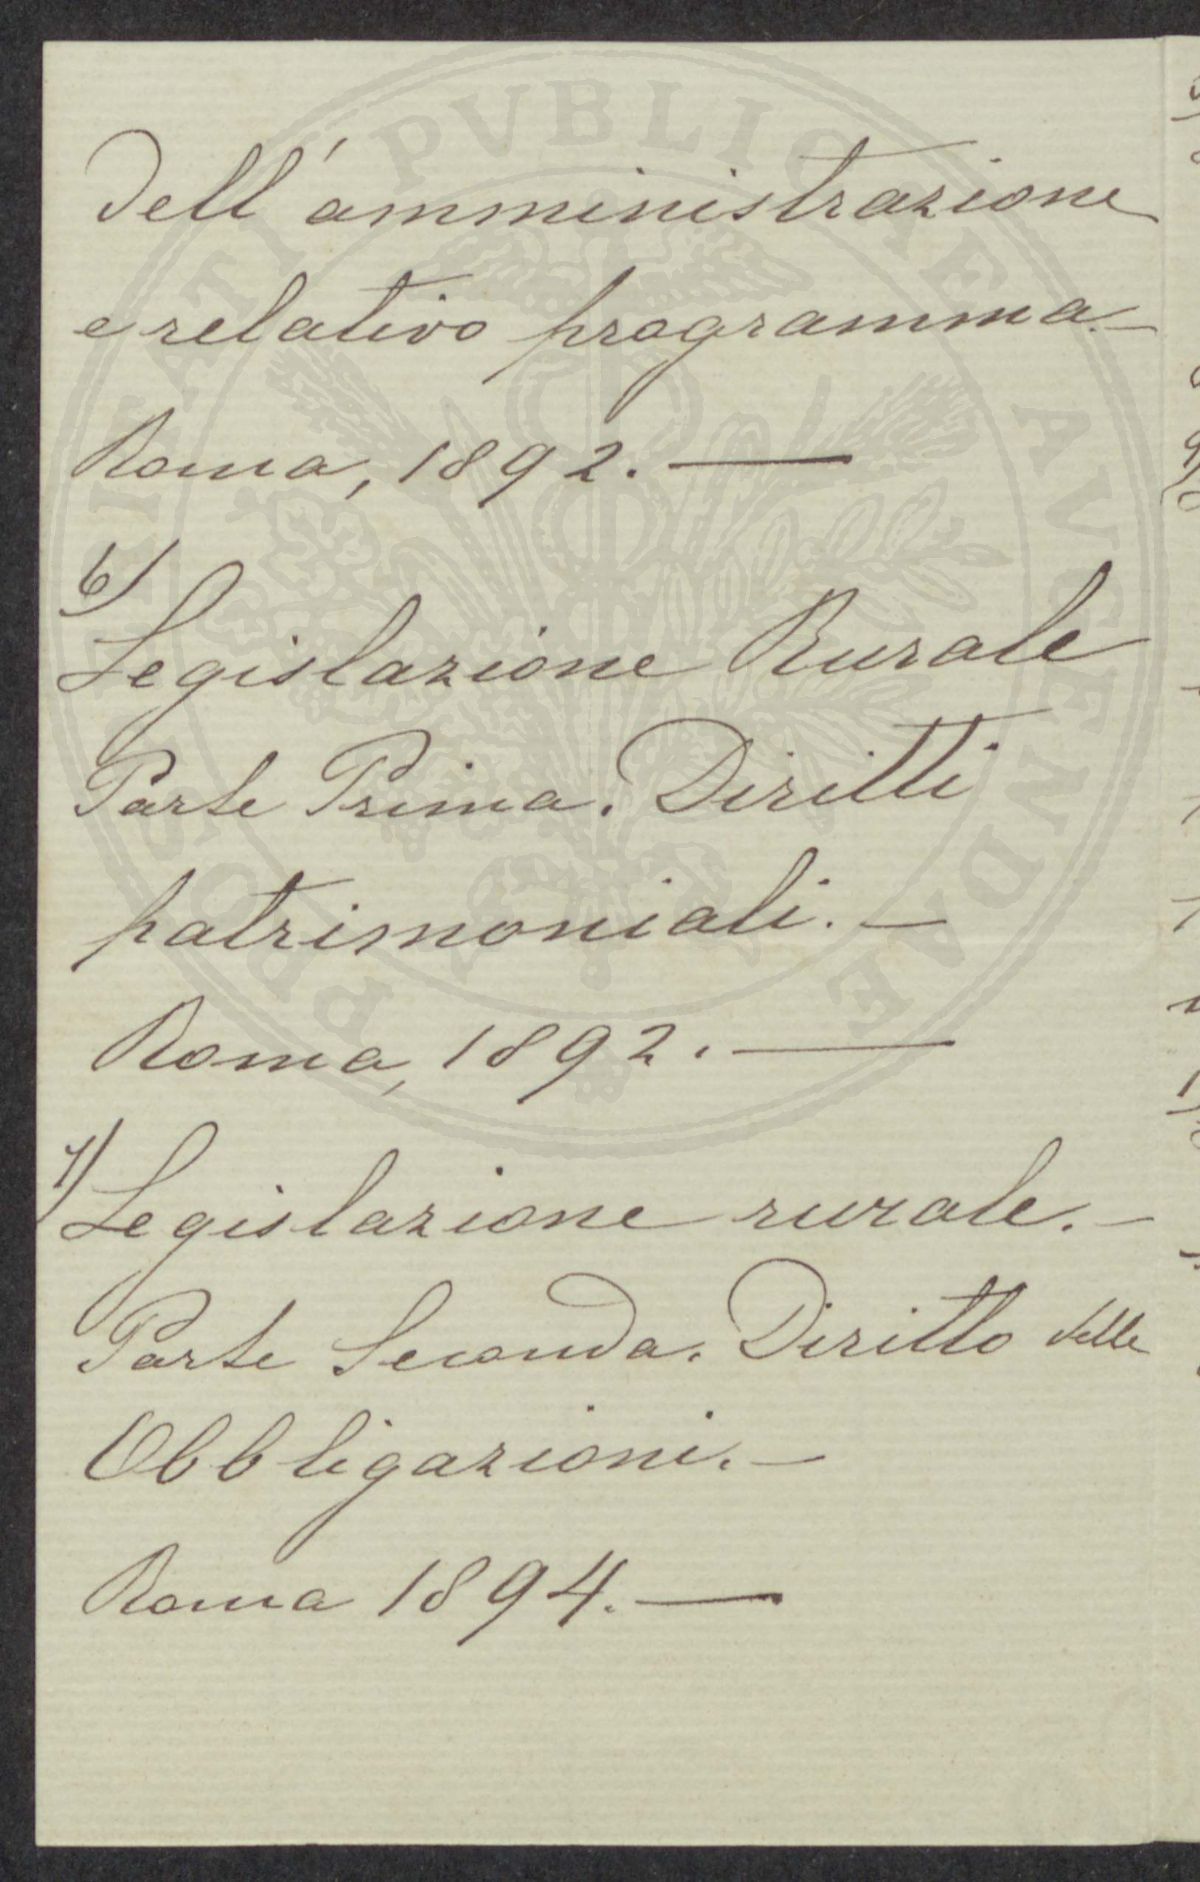 dell'amministrazione
e relativo programma.—
Roma, 1892.—
6)
Legislazione Rurale
Parte Prima. Diritti
patrimoniali.—
Roma, 1892.—
7) Legislazione rurale.—
Parte Seconda. Diritto delle
Obbligazioni.—
Roma 1894.—
PROSPERITATI PVBLICAE AVGENDAE